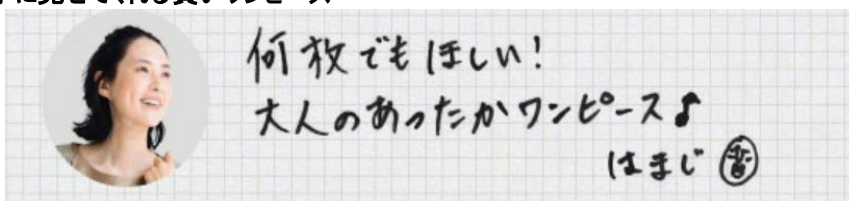 何枚でもほしい!
大人のあったかワンピース♪
はまじ